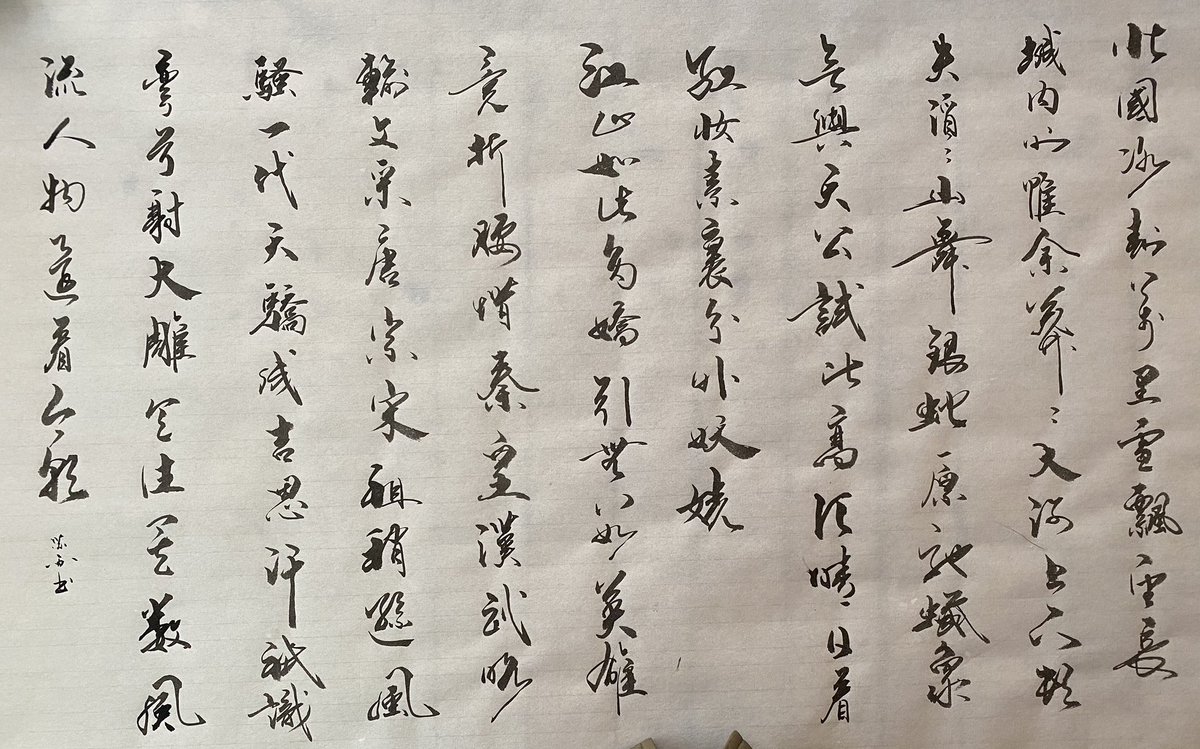 北國冰封萬里雪飄望長
城内外惟余莽〻大河上下頓
失滔〻山舞銀蛇原馳蠟象
欲與天公試比高須晴日看
紅妝素裹分外妖嬈
江山如此多嬌引無數英雄
竞折腰惜秦皇漢武略
輸文采唐宗宋祖稍遜風
騷一代天驕成吉思汗祇識
彎弓射大雕俱往矣數風
流人物還看今朝
书